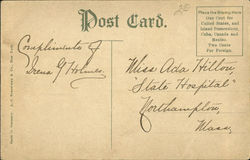 Post Card.
Place the Stamp Here
One Cent for
United States, and
Island Possessions,
Cuba, Canada and
Mexico.
Two Cents
For Foreign.
Compliments of
Irena G Holmes.
Miss Ada Hillou,
State Hospital
Northampton,
Mass.